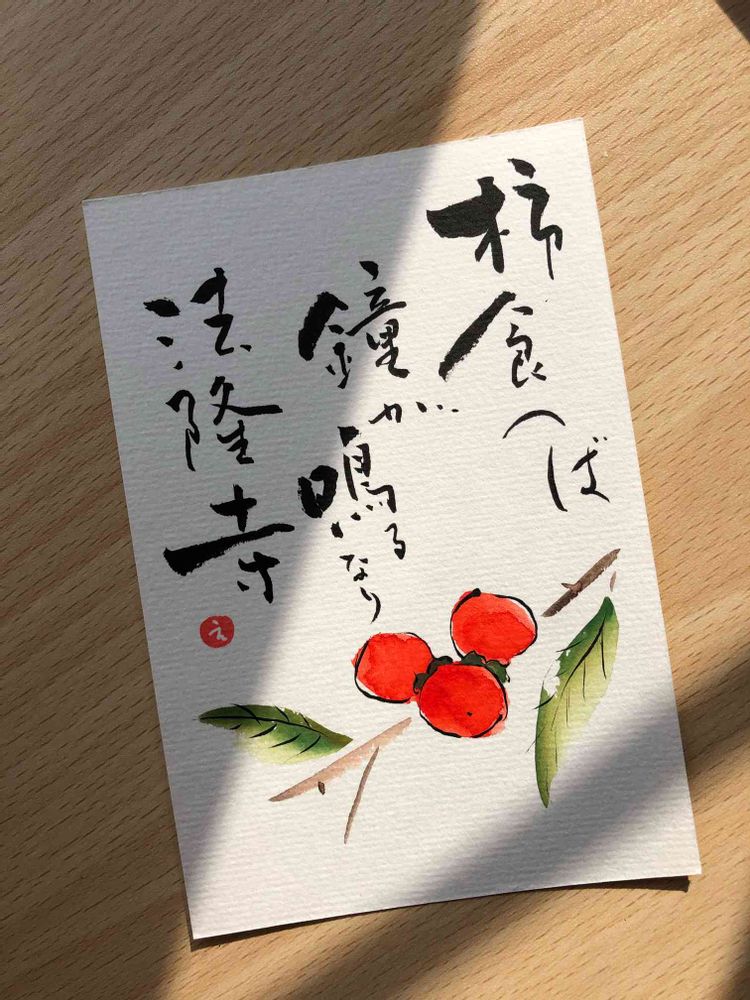 柿食へば
鐘が鳴るなり
法隆寺
え